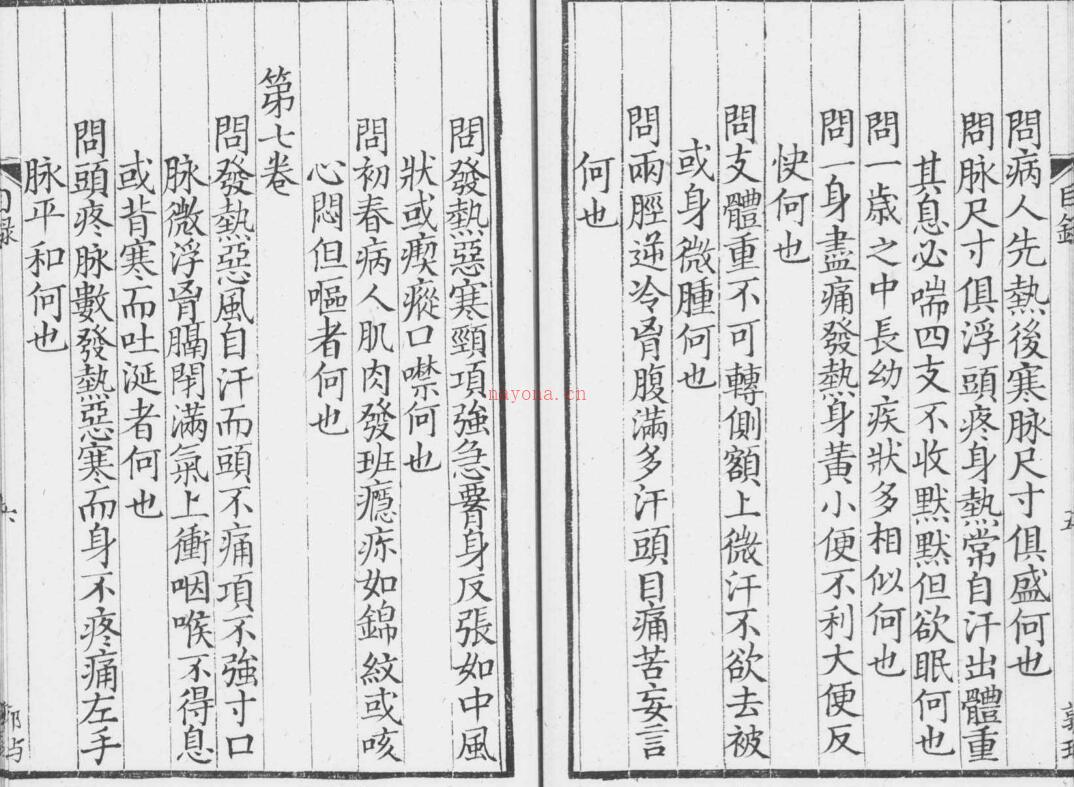 問病人先熱後寒脉尺寸俱盛何也
問脉尺寸俱浮頭疼身熱常自汗出體重
其息必喘四支不收默默但欲眠何也
問一歲之中長幼疾狀多相似何也
問一身盡痛發熱身黃小便不利大便反
快何也
問支體重不可轉側額上微汗不欲去被
或身微腫何也
問兩脛逆冷胷腹滿多汗頭目痛苦妄言
何也
目錄
nayona.cn
問發熱惡寒頸項強急腎身反張如中風
狀或瘈瘲口噤何也
問初春病人肌肉發班癮疹如錦紋或咳
心悶但嘔者何也
第七卷
問發熱惡風自汗而頭不痛項不強寸口
脉微浮胷膈閉滿氣上衝咽喉不得息
或背寒而吐涎者何也
問頭疼脉數發熱惡寒而身不疼痛左手
脉平和何也
目錄
六